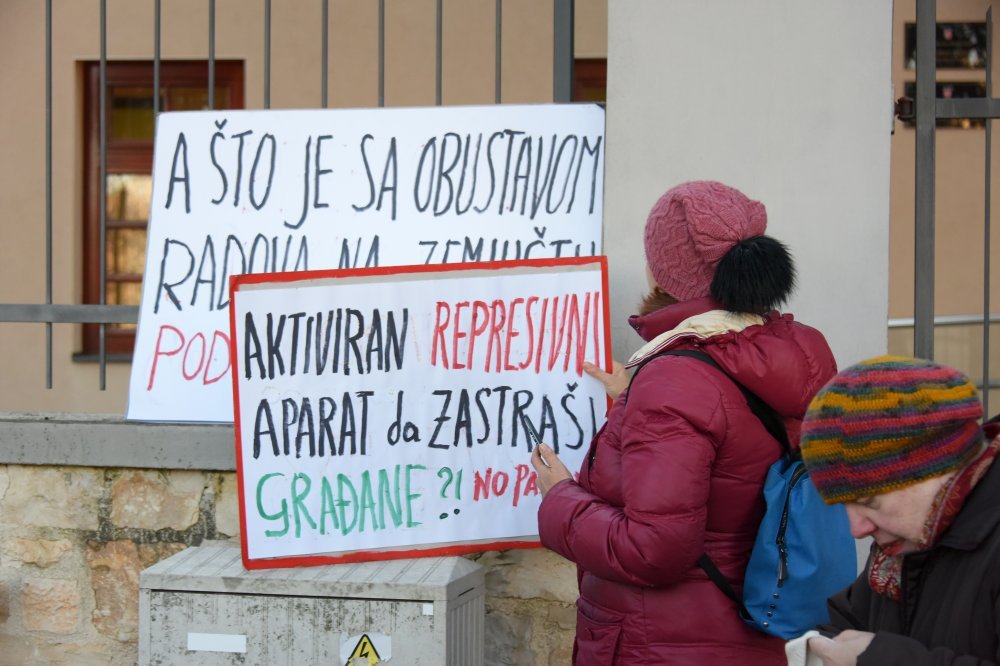 A ŠTO JE SA OBUSTAVOM
RADOVA NA ZEMLJIŠTU
POD
AKTIVIRAN REPRESIVNI
APARAT da ZASTRAŠI
GRAĐANE ?! NO PA